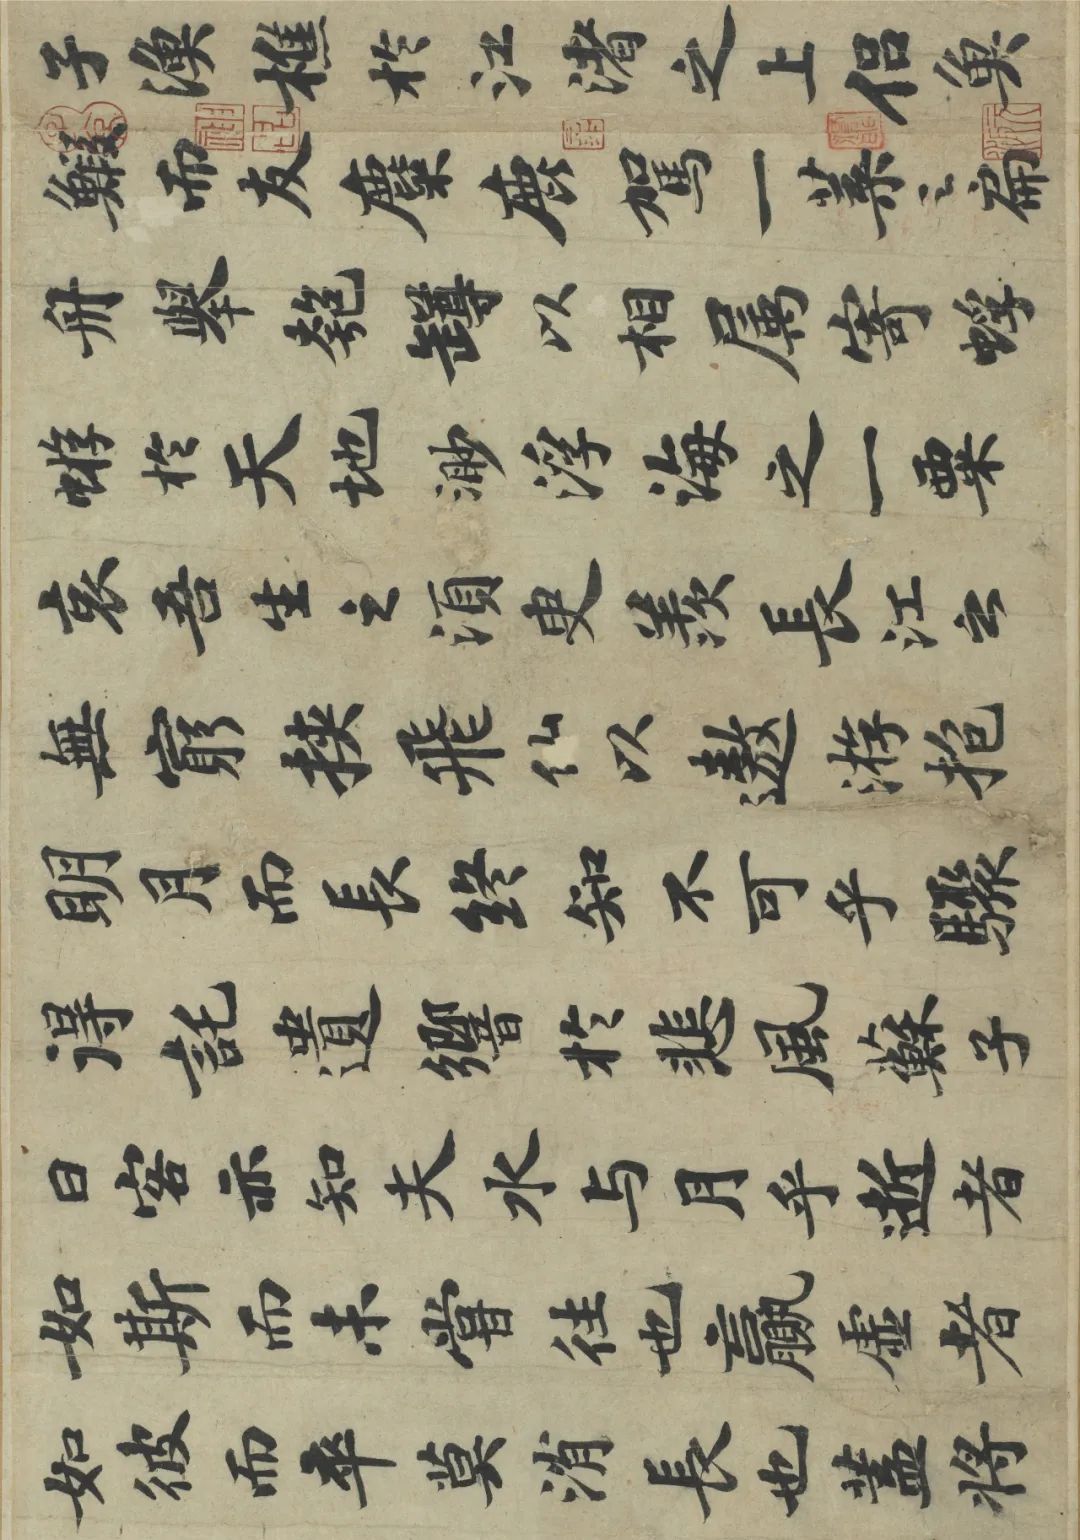 子漁樵於江渚之上侣魚
鰕而友麋鹿駕一葉之扁
舟舉匏罇以相屬寄蜉
蝣於天地渺浮海之一粟
哀吾生之須臾羨長江之
無窮挾飛仙以遨游抱
明月而長終知不可乎驟
得託遺響於悲風蘇子
曰客亦知夫水与月乎逝者
如斯而未嘗往也贏虚者
如彼而卒莫消長也蓋將